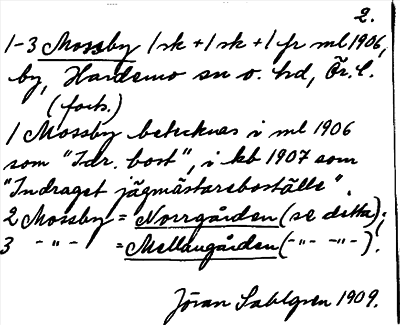 2.
1-3 Mossby 1 sk + 1 sk + 1 fr ml 1906,
by, Hardemo sn o. hd, Ör. l.
(forts.)
1 Mossby betecknas i ml 1906
som "Idr. bost", i kb 1907 som
"Indraget jägmästareboställe".
2 Mossby = Norrgården (se detta);
3 -"- = Mellangården (-"- -"-).
Jöran Sahlgren 1909.